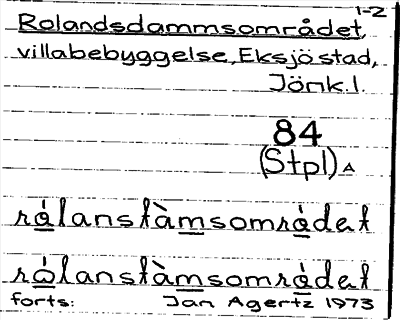 1-2
Rolandsdammsområdet,
villabebyggelse, Eksjö stad,
Jönk.l.
84
(Stpl) A
rålanstàmsområdet
rålanstàmsområdet
forts: Jan Agertz 1973